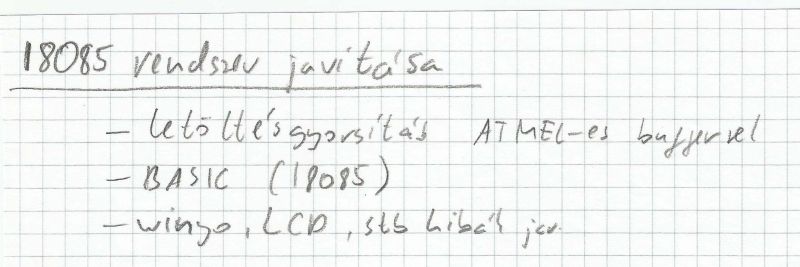 18085 rendszer javítása
- letöltésgyorsítás ATMEL-es bufferrel
- BASIC (18085)
- wingo, LCD, stb hibák jav.